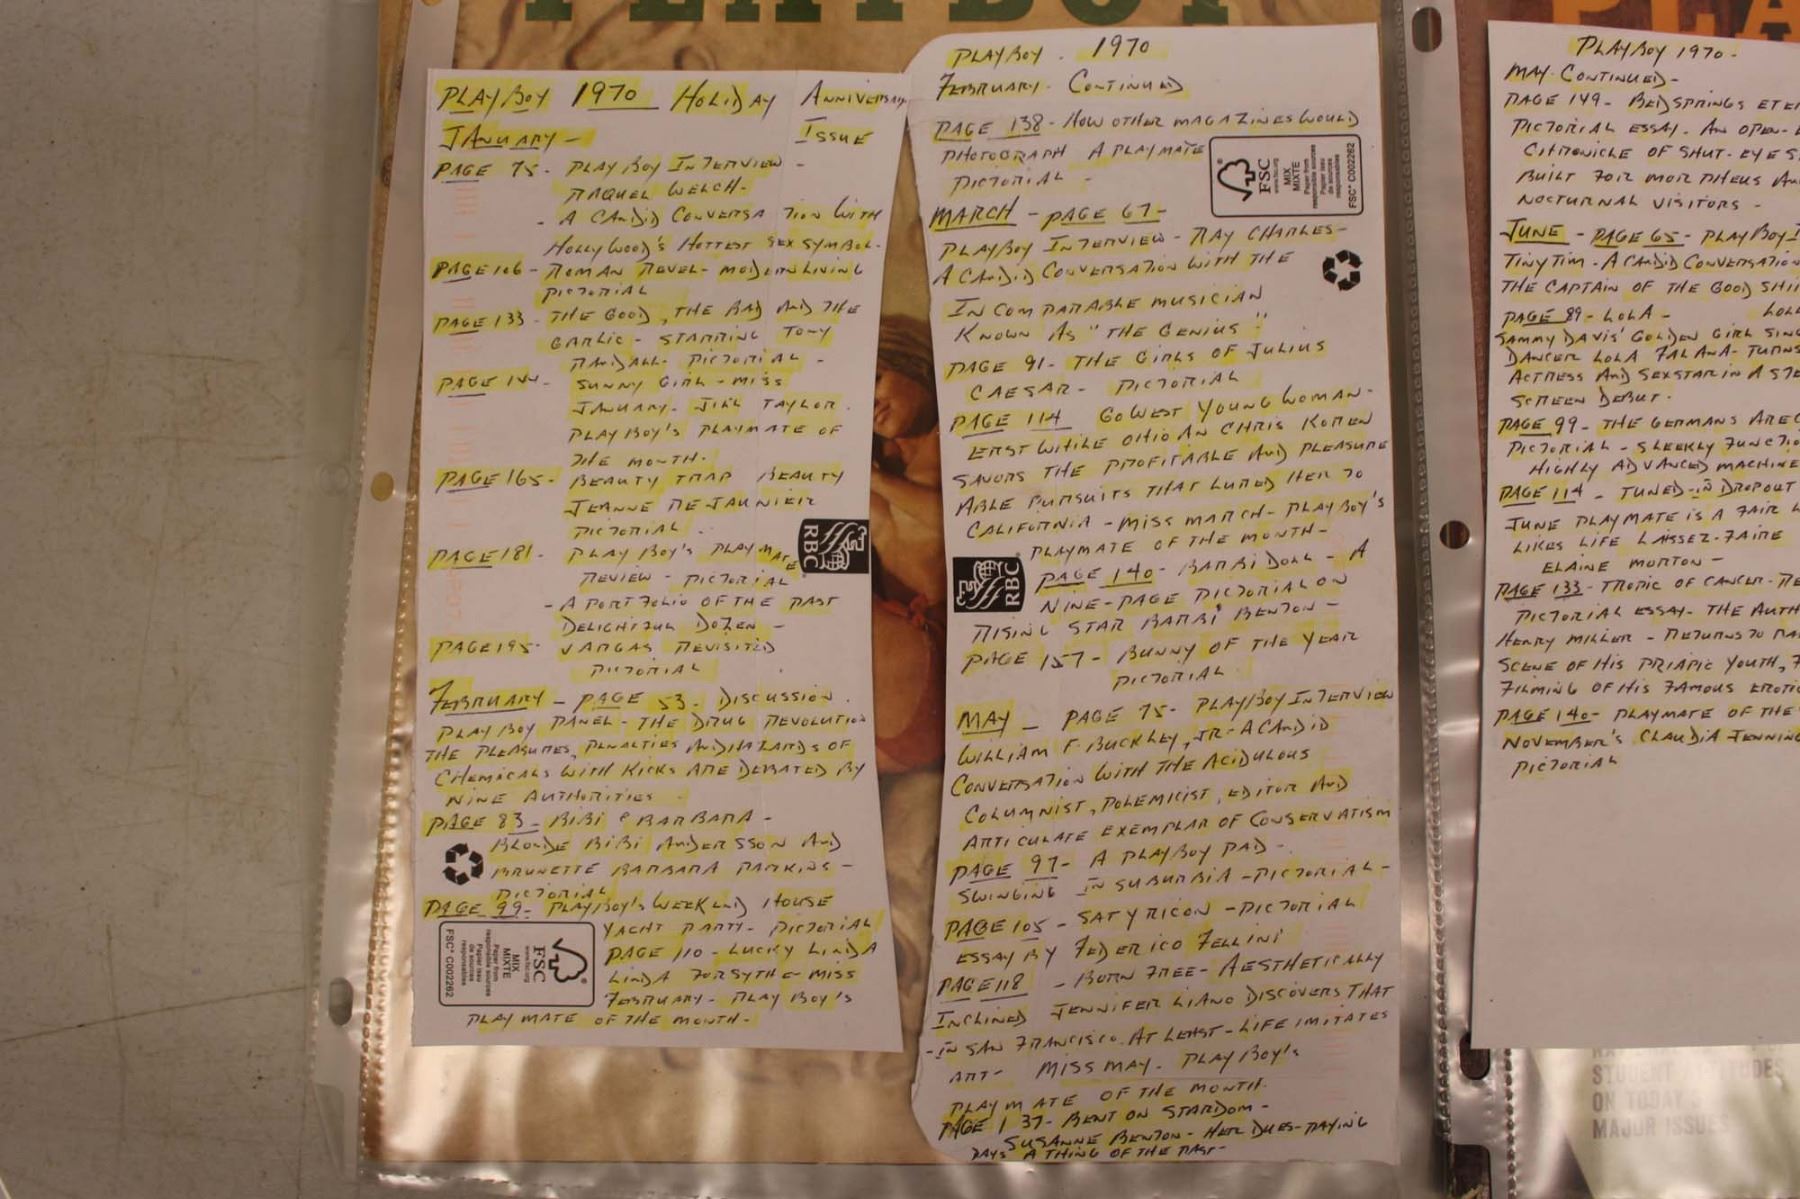 PLAYBOY
PLAYBOY 1970 HOLIDAY ANNIVERSARY
JANUARY - ISSUE
PAGE 75 - PLAYBOY INTERVIEW -
RAQUEL WELCH -
- A CANDID CONVERSATION WITH
HOLLYWOOD'S HOTTEST SEX SYMBOL -
PAGE 106 - ROMAN REVEL - MODERN LIVING
PICTORIAL
PAGE 133 - THE GOOD, THE BAD AND THE
GARLIC - STARRING TONY
RANDALL - PICTORIAL -
PAGE 144 - SUNNY GIRL - MISS
JANUARY - JILL TAYLOR.
PLAYBOY'S PLAYMATE OF
THE MONTH.
PAGE 165 - BEAUTY TRAP BEAUTY
JEANNE REJAUNIER
PICTORIAL.
PAGE 181 - PLAYBOY'S PLAYMATE
REVIEW - PICTORIAL
- A PORTFOLIO OF THE PAST
DELIGHTFUL DOZEN -
PAGE 195 - VARGAS REVISITED
PICTORIAL
FEBRUARY - PAGE 53 - DISCUSSION.
PLAYBOY PANEL - THE DRUG REVOLUTION
THE PLEASURES, PENALTIES AND HAZARDS OF
CHEMICALS WITH KICKS ARE DEBATED BY
NINE AUTHORITIES.
PAGE 83 - BIBI & BARBARA -
BLONDE BIBI ANDERSSON AND
BRUNETTE BARBARA PARKINS -
PICTORIAL
PAGE 99 - PLAYBOY'S WEEKEND HOUSE
YACHT PARTY - PICTORIAL
PAGE 110 - LUCKY LINDA
LINDA FORSYTHE - MISS
FEBRUARY - PLAYBOY'S
PLAYMATE OF THE MONTH -
RBC
FSC
www.fsc.org
MIX
MIXTE
Paper from
responsible sources
Papier issu
de sources
responsables
FSC® C002262
PLAYBOY. 1970
FEBRUARY - CONTINUED
PAGE 138 - HOW OTHER MAGAZINES WOULD
PHOTOGRAPH A PLAYMATE
PICTORIAL -
FSC
www.fsc.org
MIX
MIXTE
Paper from
responsible sources
Papier issu
de sources
responsables
FSC® C002262
MARCH - PAGE 67 -
PLAYBOY INTERVIEW - RAY CHARLES -
A CANDID CONVERSATION WITH THE
INCOMPARABLE MUSICIAN
KNOWN AS "THE GENIUS"
PAGE 91 - THE GIRLS OF JULIUS
CAESAR - PICTORIAL
PAGE 114 GO WEST YOUNG WOMAN -
ERSTWHILE OHIOAN CHRIS KOREN
SAVORS THE PROFITABLE AND PLEASURE
ABLE PURSUITS THAT LURED HER TO
CALIFORNIA - MISS MARCH - PLAYBOY'S
PLAYMATE OF THE MONTH -
RBC
PAGE 140 - BARBI DOLL - A
NINE-PAGE PICTORIAL ON
RISING STAR BARBI BENTON -
PAGE 157 - BUNNY OF THE YEAR
PICTORIAL.
MAY - PAGE 75 - PLAYBOY INTERVIEW
WILLIAM F. BUCKLEY, JR - A CANDID
CONVERSATION WITH THE ACIDULOUS
COLUMNIST, POLEMICIST, EDITOR AND
ARTICULATE EXEMPLAR OF CONSERVATISM
PAGE 97 - A PLAYBOY PAD -
SWINGING IN SUBURBIA - PICTORIAL -
PAGE 105 - SATYRICON - PICTORIAL
ESSAY BY FEDERICO FELLINI
PAGE 118 - BORN FREE - AESTHETICALLY
INCLINED JENNIFER LIANO DISCOVERS THAT
- IN SAN FRANCISCO. AT LEAST - LIFE IMITATES
ART - MISS MAY. PLAYBOY'S
PLAYMATE OF THE MONTH.
PAGE 137 - BENT ON STARDOM -
SUSANNE BENTON - HER DUES-PAYING
DAYS A THING OF THE PAST -
PLA
PLAYBOY 1970 -
MAY - CONTINUED -
PAGE 149 - BEDSPRINGS
PICTORIAL ESSAY. AN OPEN-
CHRONICLE OF SHUT-EYE
BUILT FOR MORPHEUS
NOCTURNAL VISITORS -
JUNE - PAGE 65 - PLAYBOY
TINY TIM - A CANDID CONVERSATION
THE CAPTAIN OF THE GOOD
PAGE 89 - LOLA -
SAMMY DAVIS' GOLDEN GIRL
DANCER LOLA FALANA - TURNS
ACTRESS AND SEXSTAR IN A
SCREEN DEBUT.
PAGE 99 - THE GERMANS ARE
PICTORIAL - SLEEKLY
HIGHLY ADVANCED MACHINE
PAGE 114 - TUNED-IN DROPOUT
JUNE PLAYMATE IS A FAIR
LIKES LIFE LAISSEZ-FAIRE
ELAINE MORTON -
PAGE 133 - TROPIC OF CANCER -
PICTORIAL ESSAY - THE
HENRY MILLER - RETURNS TO
SCENE OF HIS PRIAPIC YOUTH,
FILMING OF HIS FAMOUS
PAGE 140 - PLAYMATE OF THE
NOVEMBER'S CLAUDIA
PICTORIAL
STUDENT
ON TODAY'S
MAJOR ISSUES